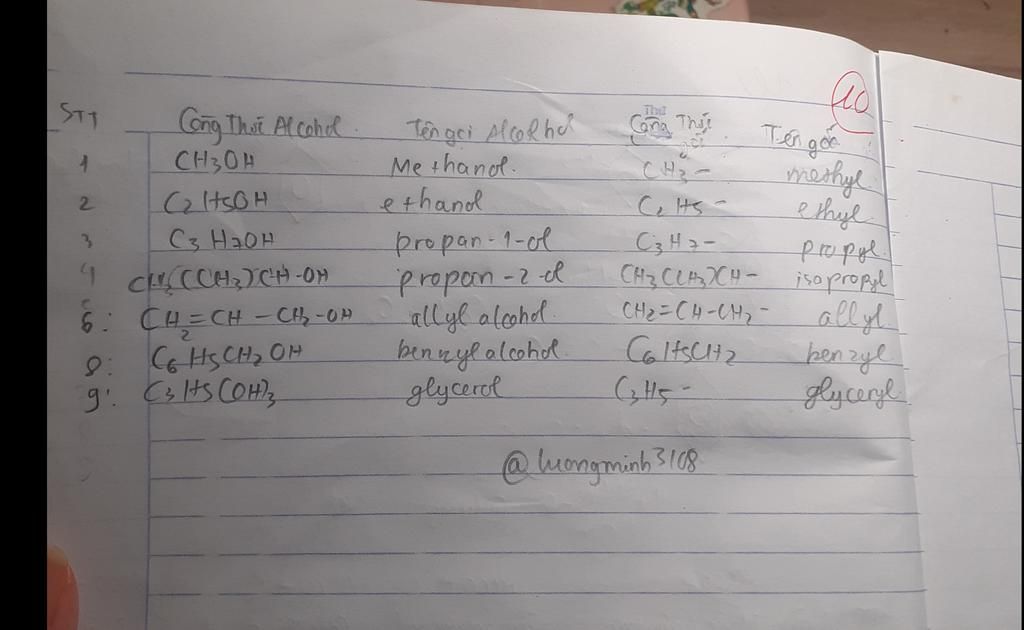 10
STT Công Thức Alcohol Tên gọi Alcolhol Công Thức gốc Tên gốc
1 CH3OH Methanol. CH3- methyl
2 C2H5OH ethanol C2H5- ethyl
3 C3H7OH propan-1-ol C3H7- propyl
4 CH3(CH3)CH-OH propan-2-ol CH3(CH3)CH- isopropyl
6: CH2=CH-CH2-OH allyl alcohol CH2=CH-CH2- allyl
8: C6H5CH2OH benzyl alcohol C6H5CH2 benzyl
9: C3H5(OH)3 glycerol C3H5- glyceryl
@luongminh3108